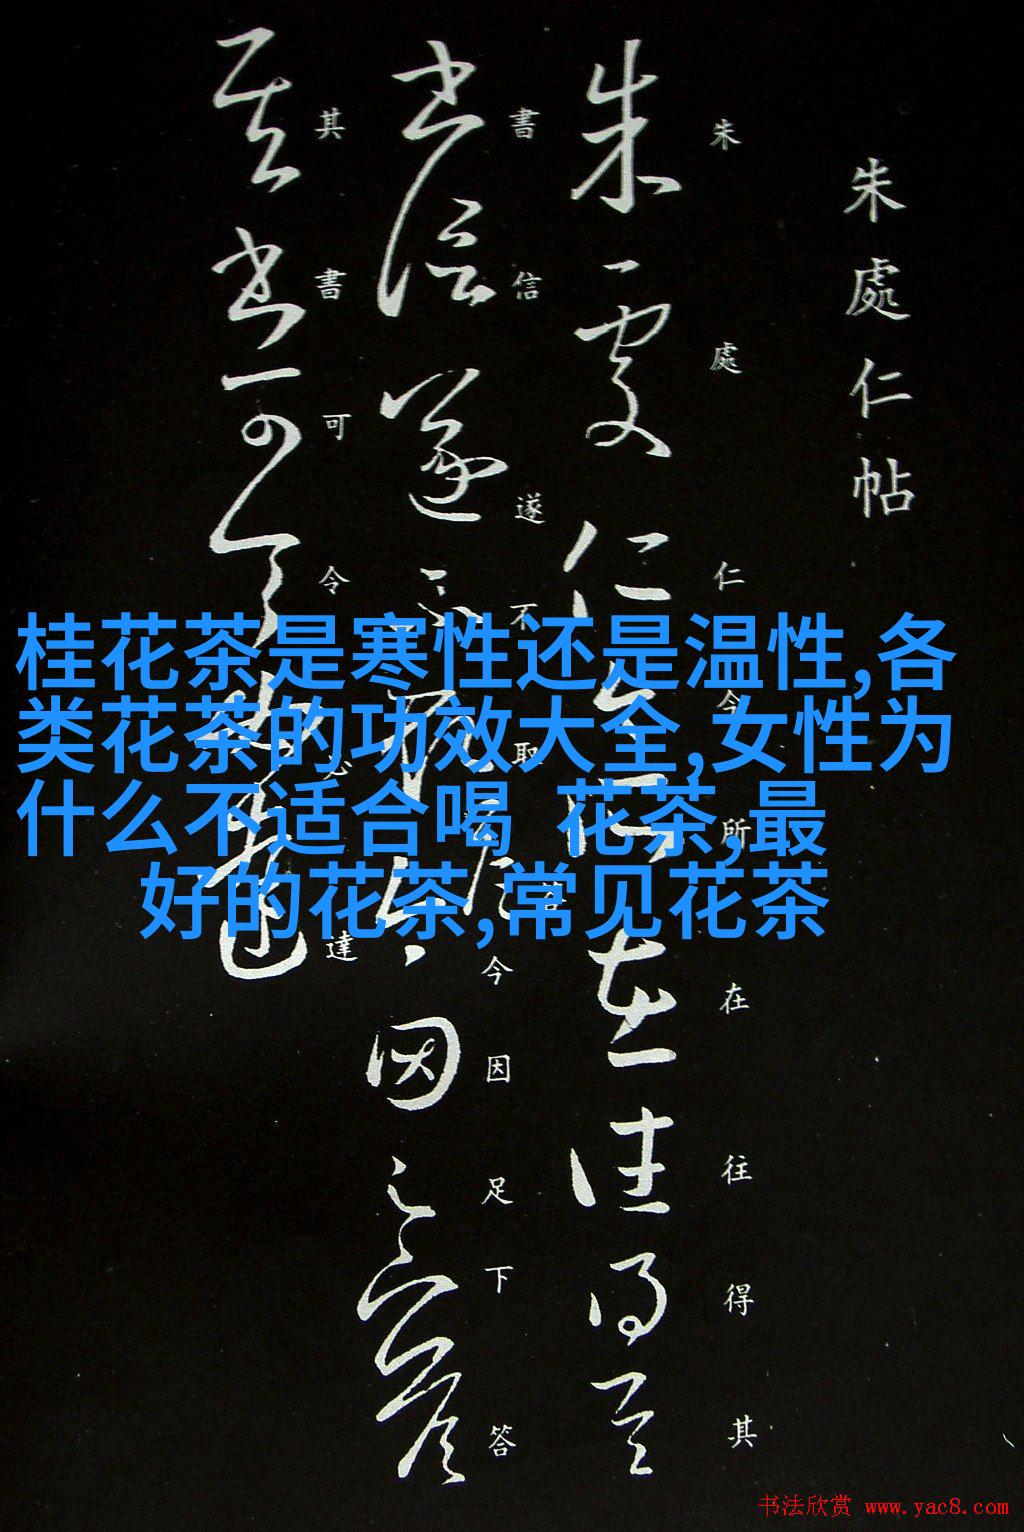 朱處仁帖
朱處仁今所在往得其
書信遂不取答今因足下答
其書可令必達
桂花茶是寒性还是温性,各
类花茶的功效大全,女性为
什么不适合喝 花茶,最
好的花茶,常见花茶
书法欣赏 www.yac8.com